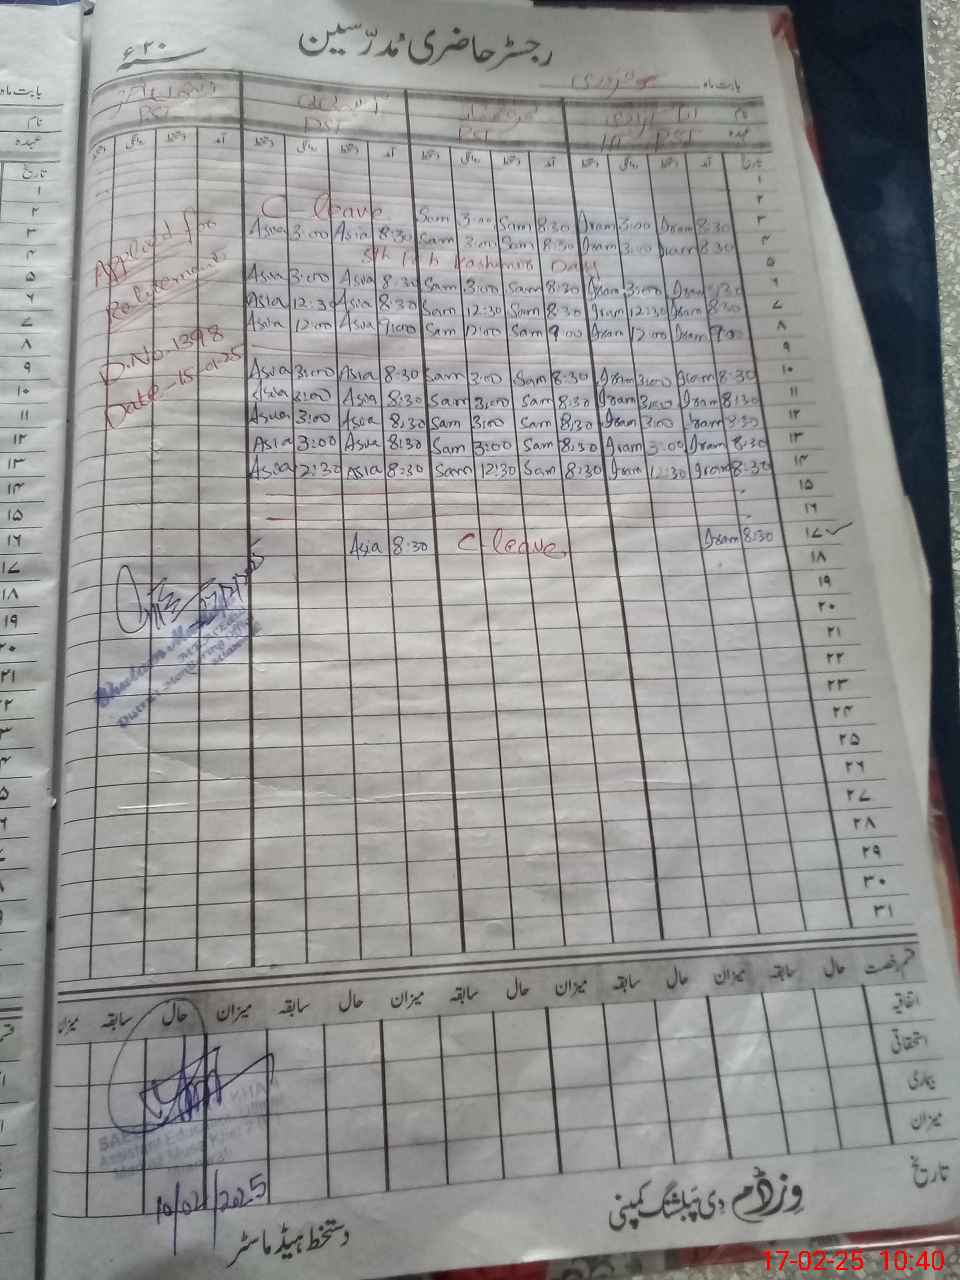 رجسٹر حاضری مُدرّسین
۲۰ء
بابت ماہ
نام
عہدہ
PST
PST
PST
PST
تاریخ آمد دستخط روانگی دستخط آمد دستخط روانگی دستخط آمد دستخط روانگی دستخط آمد روانگی دستخط
۱
۲
C-leave
Sam 3:00 Sam 8:30 Iram 3:00 Iram 8:30 ۳
Asia 3:00 Asia 8:30 Sam 3:00 Sam 8:30 Iram 3:00 Iram 8:30 ۴
5th Feb Kashmir Day ۵
Asia 3:00 Asia 8:30 Sam 3:00 Sam 8:30 Iram 3:00 Iram 8:30 ۶
Asia 12:30 Asia 8:30 Sam 12:30 Sam 8:30 Iram 12:30 Iram 8:30 ۷
Asia 12:00 Asia 9:00 Sam 12:00 Sam 9:00 Iram 12:00 Iram 9:00 ۸
۹
Asia 3:00 Asia 8:30 Sam 3:00 Sam 8:30 Iram 3:00 Iram 8:30 ۱۰
Asia 3:00 Asia 8:30 Sam 3:00 Sam 8:30 Iram 3:00 Iram 8:30 ۱۱
Asia 3:00 Asia 8:30 Sam 3:00 Sam 8:30 Iram 3:00 Iram 8:30 ۱۲
Asia 3:00 Asia 8:30 Sam 3:00 Sam 8:30 Iram 3:00 Iram 8:30 ۱۳
Asia 2:30 Asia 8:30 Sam 12:30 Sam 8:30 Iram 12:30 Iram 8:30 ۱۴
۱۵
۱۶
Asia 8:30 C-leave Iram 8:30 ۱۷
۱۸
۱۹
۲۰
۲۱
۲۲
۲۳
۲۴
۲۵
۲۶
۲۷
۲۸
۲۹
۳۰
۳۱
Applied for
Retirement
D.No-1398
Date-15-01-25
قسم رخصت حال سابقہ میزان حال سابقہ میزان حال سابقہ میزان حال سابقہ میزان
اتفاقیہ
استحقاقی
بیماری
میزان
10/02/2025
تاریخ
دستخط ہیڈ ماسٹر
وزڈم دی پبلشنگ کمپنی
17-02-25 10:40